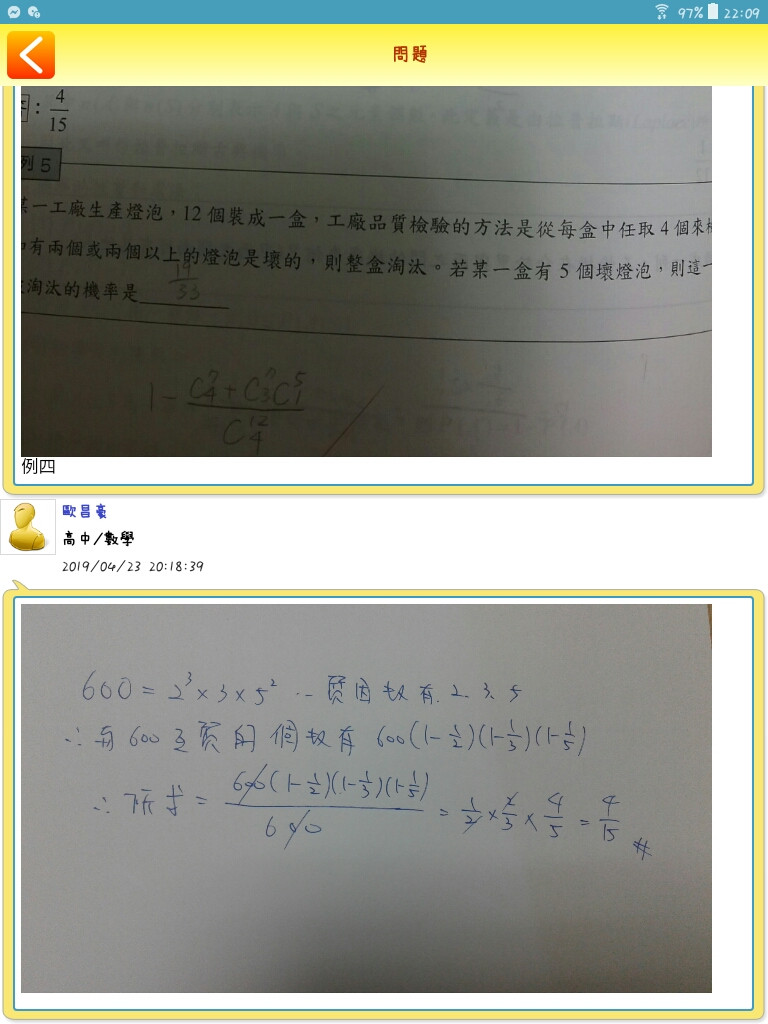 97% 22:09
問題
: 4/15
列 5
某一工廠生產燈泡，12 個裝成一盒，工廠品質檢驗的方法是從每盒中任取 4 個來
有兩個或兩個以上的燈泡是壞的，則整盒淘汰。若某一盒有 5 個壞燈泡，則這一
淘汰的機率是 19/33
1 - (C⁷₄ + C⁷₃C⁵₁)/C¹²₄
例四
歐昌豪
高中/數學
2019/04/23 20:18:39
600 = 2³ × 3 × 5² ∴ 質因數有 2. 3. 5
∴ 與 600 互質的個數有 600(1-1/2)(1-1/3)(1-1/5)
∴ 所求 = 600(1-1/2)(1-1/3)(1-1/5)/600 = 1/2 × 2/3 × 4/5 = 4/15 #